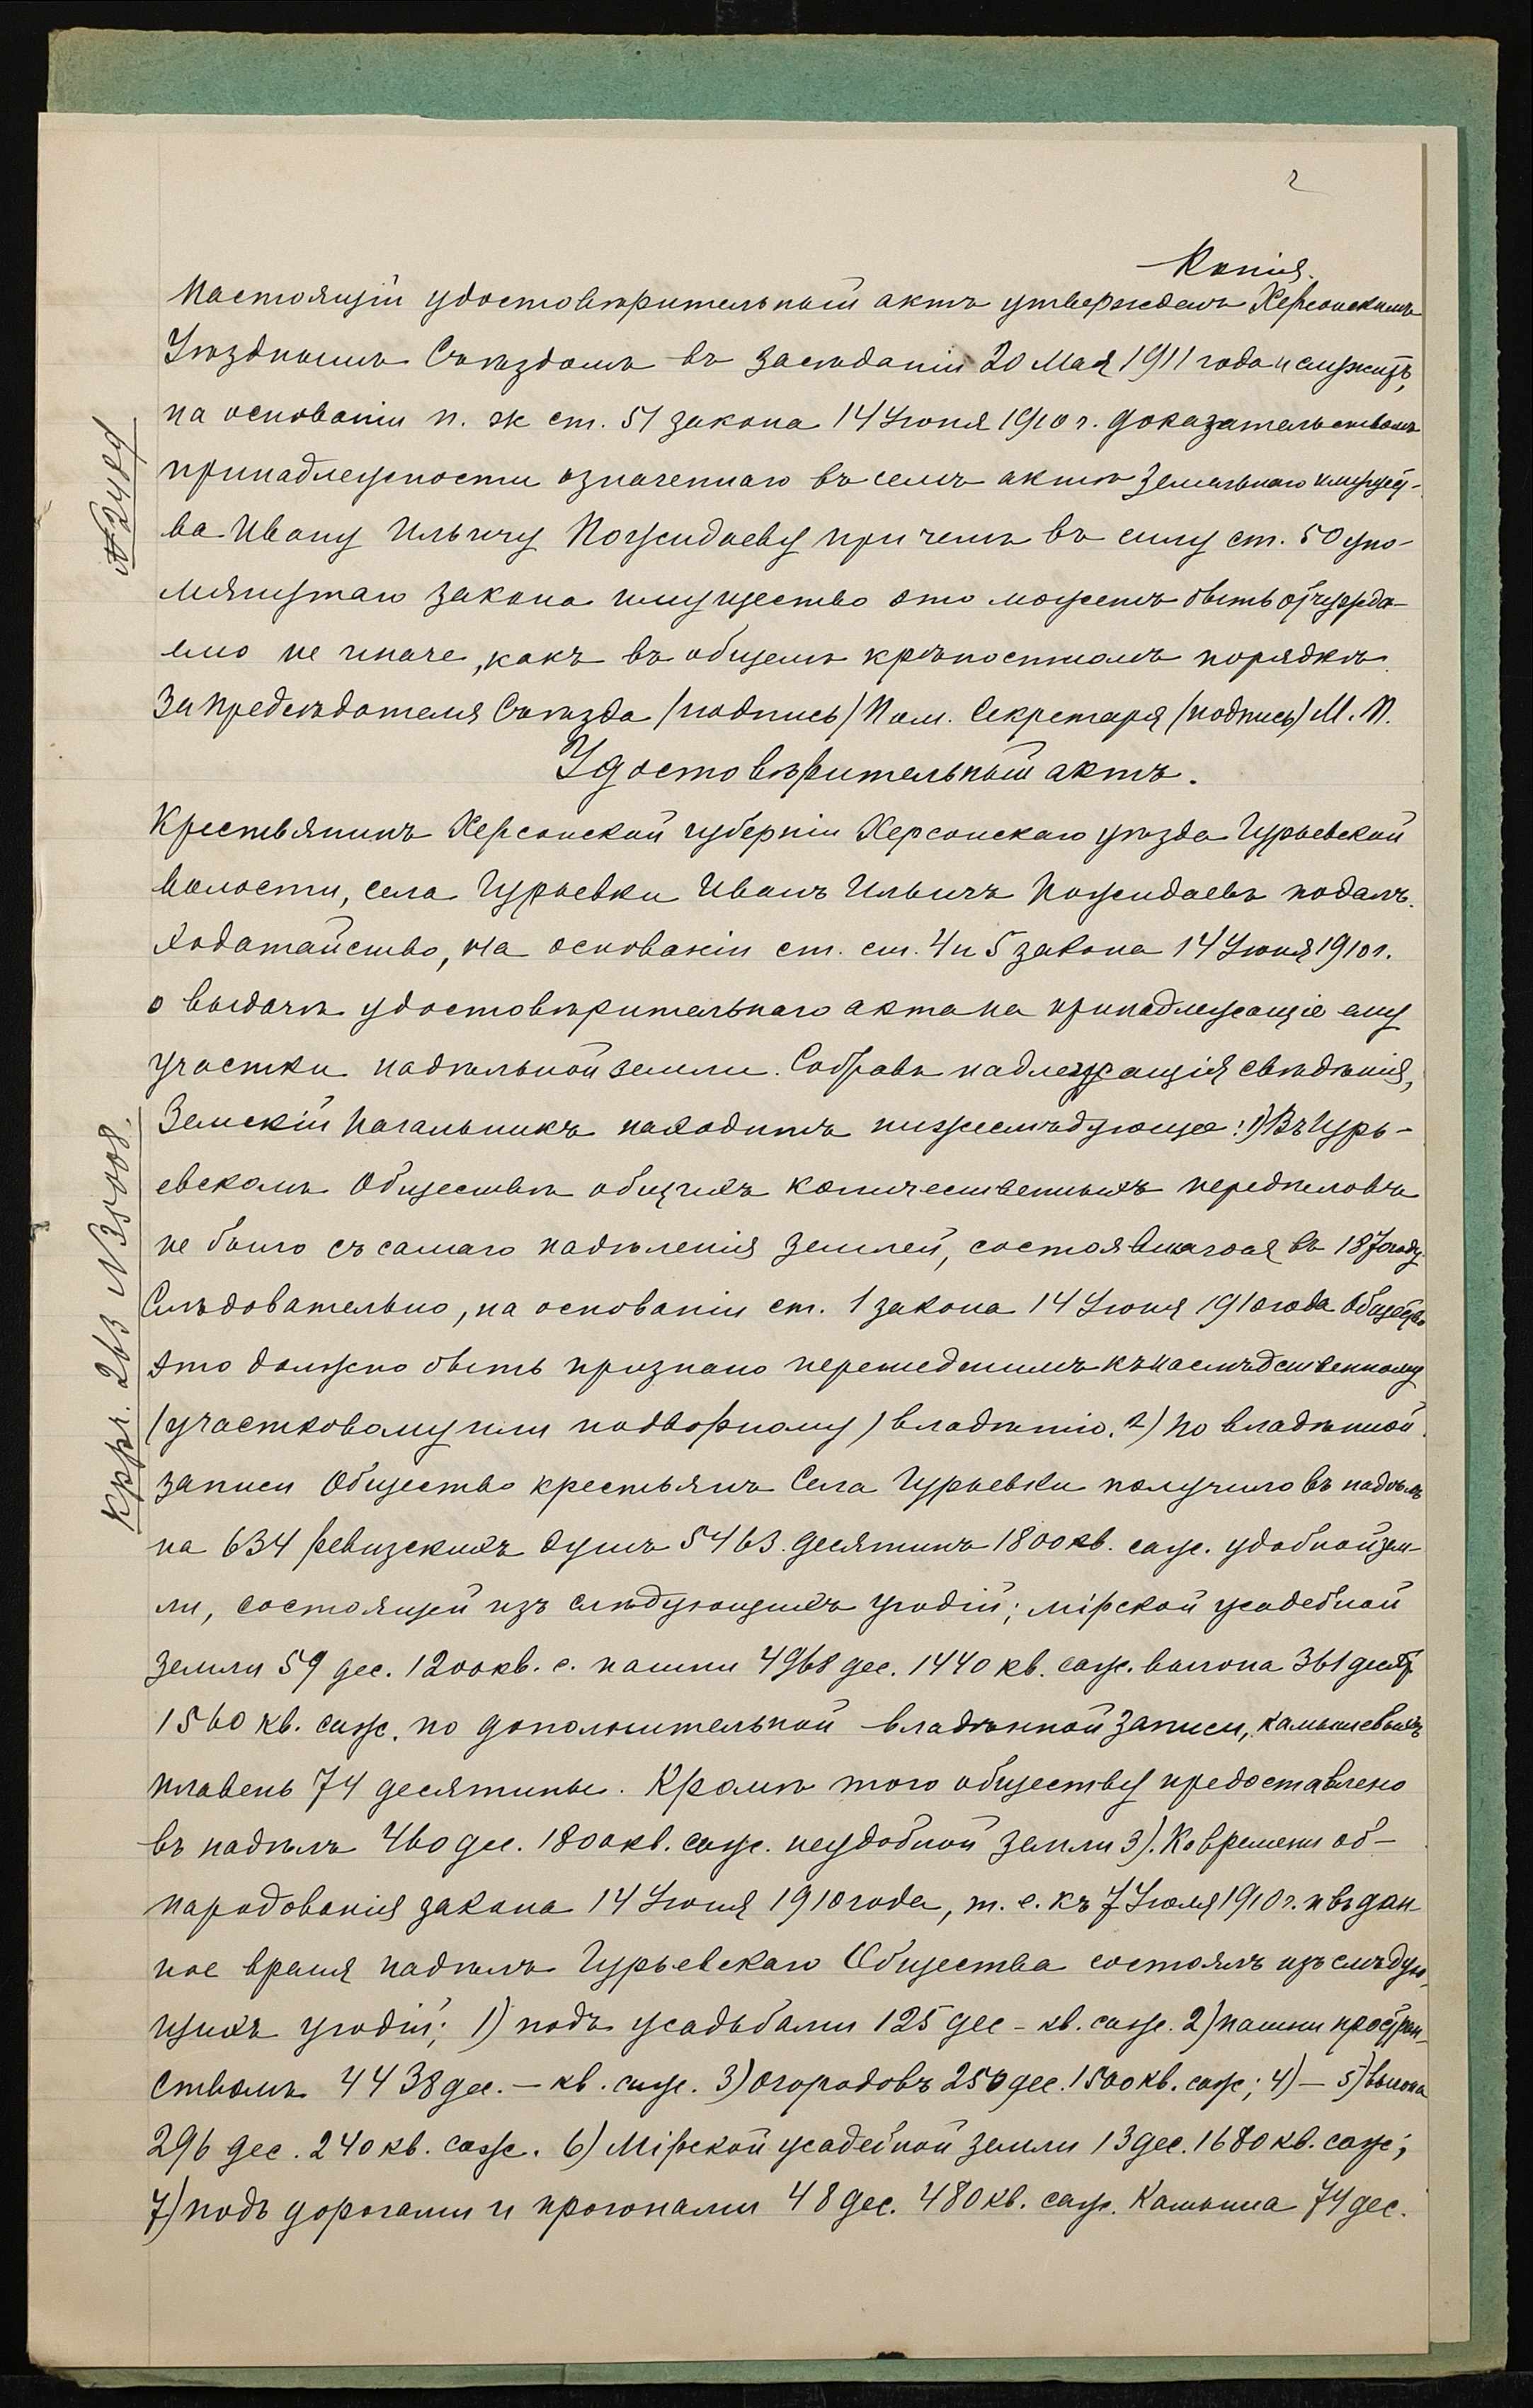 2
Копія.
Настоящій удостовѣрительный актъ утвержденъ Херсонскимъ
Уѣзднымъ Съѣздомъ въ засѣданіи 20 Мая 1911 года и служитъ,
на основаніи п. ж ст. 51 закона 14 Іюня 1910 г. доказательствомъ
принадлежности означеннаго въ семъ актѣ земельнаго имущест-
ва Ивану Ильичу Пожидаеву при чемъ въ силу ст. 50 упо-
мянутаго закона имущество это можетъ быть отчужда-
емо не иначе, какъ въ общемъ крѣпостномъ порядкѣ
За предсѣдателя Съѣзда /подпись/ Пом. Секретаря /подпись/ М. П.
Удостовѣрительный актъ.
Крестьянинъ Херсонской губерніи Херсонскаго уѣзда Гурьевской
волости, села Гурьевки Иванъ Ильичъ Пожидаевъ подалъ
ходатайство, на основаніи ст. ст. 4 и 5 закона 14 Іюня 1910 г.
о выдачѣ удостовѣрительнаго акта на принадлежащіе ему
участки надѣльной земли. Собравъ надлежащія свѣдѣнія,
Земскій Начальникъ находитъ нижеслѣдующее: 1) Въ Гурь-
евскомъ Обществѣ общихъ количественныхъ передѣловъ
не было съ самаго надѣленія землей, состоявшагося въ 1870 году.
Слѣдовательно, на основаніи ст. 1 закона 14 Іюня 1910 года Общество
это должно быть признано перешедшимъ къ наслѣдственному
/участковому или подворному/ владѣнію. 2) По владѣнной
записи Общество крестьянъ Села Гурьевки получило въ надѣлъ
на 634 ревизскихъ душъ 5463 десятинъ 1800 кв. саж. удобной зем-
ли, состоящей изъ слѣдующихъ угодій; мірской усадебной
земли 59 дес. 1200 кв. с. пашни 4968 дес. 1440 кв. саж. выгона 361 десят
1560 кв. саж. по дополнительной владѣнной записи, камышевыхъ
плавень 74 десятины. Кромѣ того обществу предоставлено
въ надѣлъ 460 дес. 1800 кв. саж. неудобной земли 3). Ко времени об-
народованія закона 14 Іюня 1910 года, т. е. къ 7 Іюля 1910 г. и въ дан-
ное время надѣлъ Гурьевскаго Общества состоялъ изъ слѣдую-
щихъ угодій; 1) подъ усадьбами 125 дес – кв. саж. 2) пашни простран-
ствомъ 4438 дес. – кв. саж. 3) огородовъ 250 дес. 1500 кв. саж; 4) – 5) выгона
296 дес. 240 кв. саж. 6) Мірской усадебной земли 13 дес. 1680 кв. саж;
7) подъ дорогами и прогонами 48 дес. 480 кв. саж. Камыша 74 дес.
№ 2489
263 № 35008.